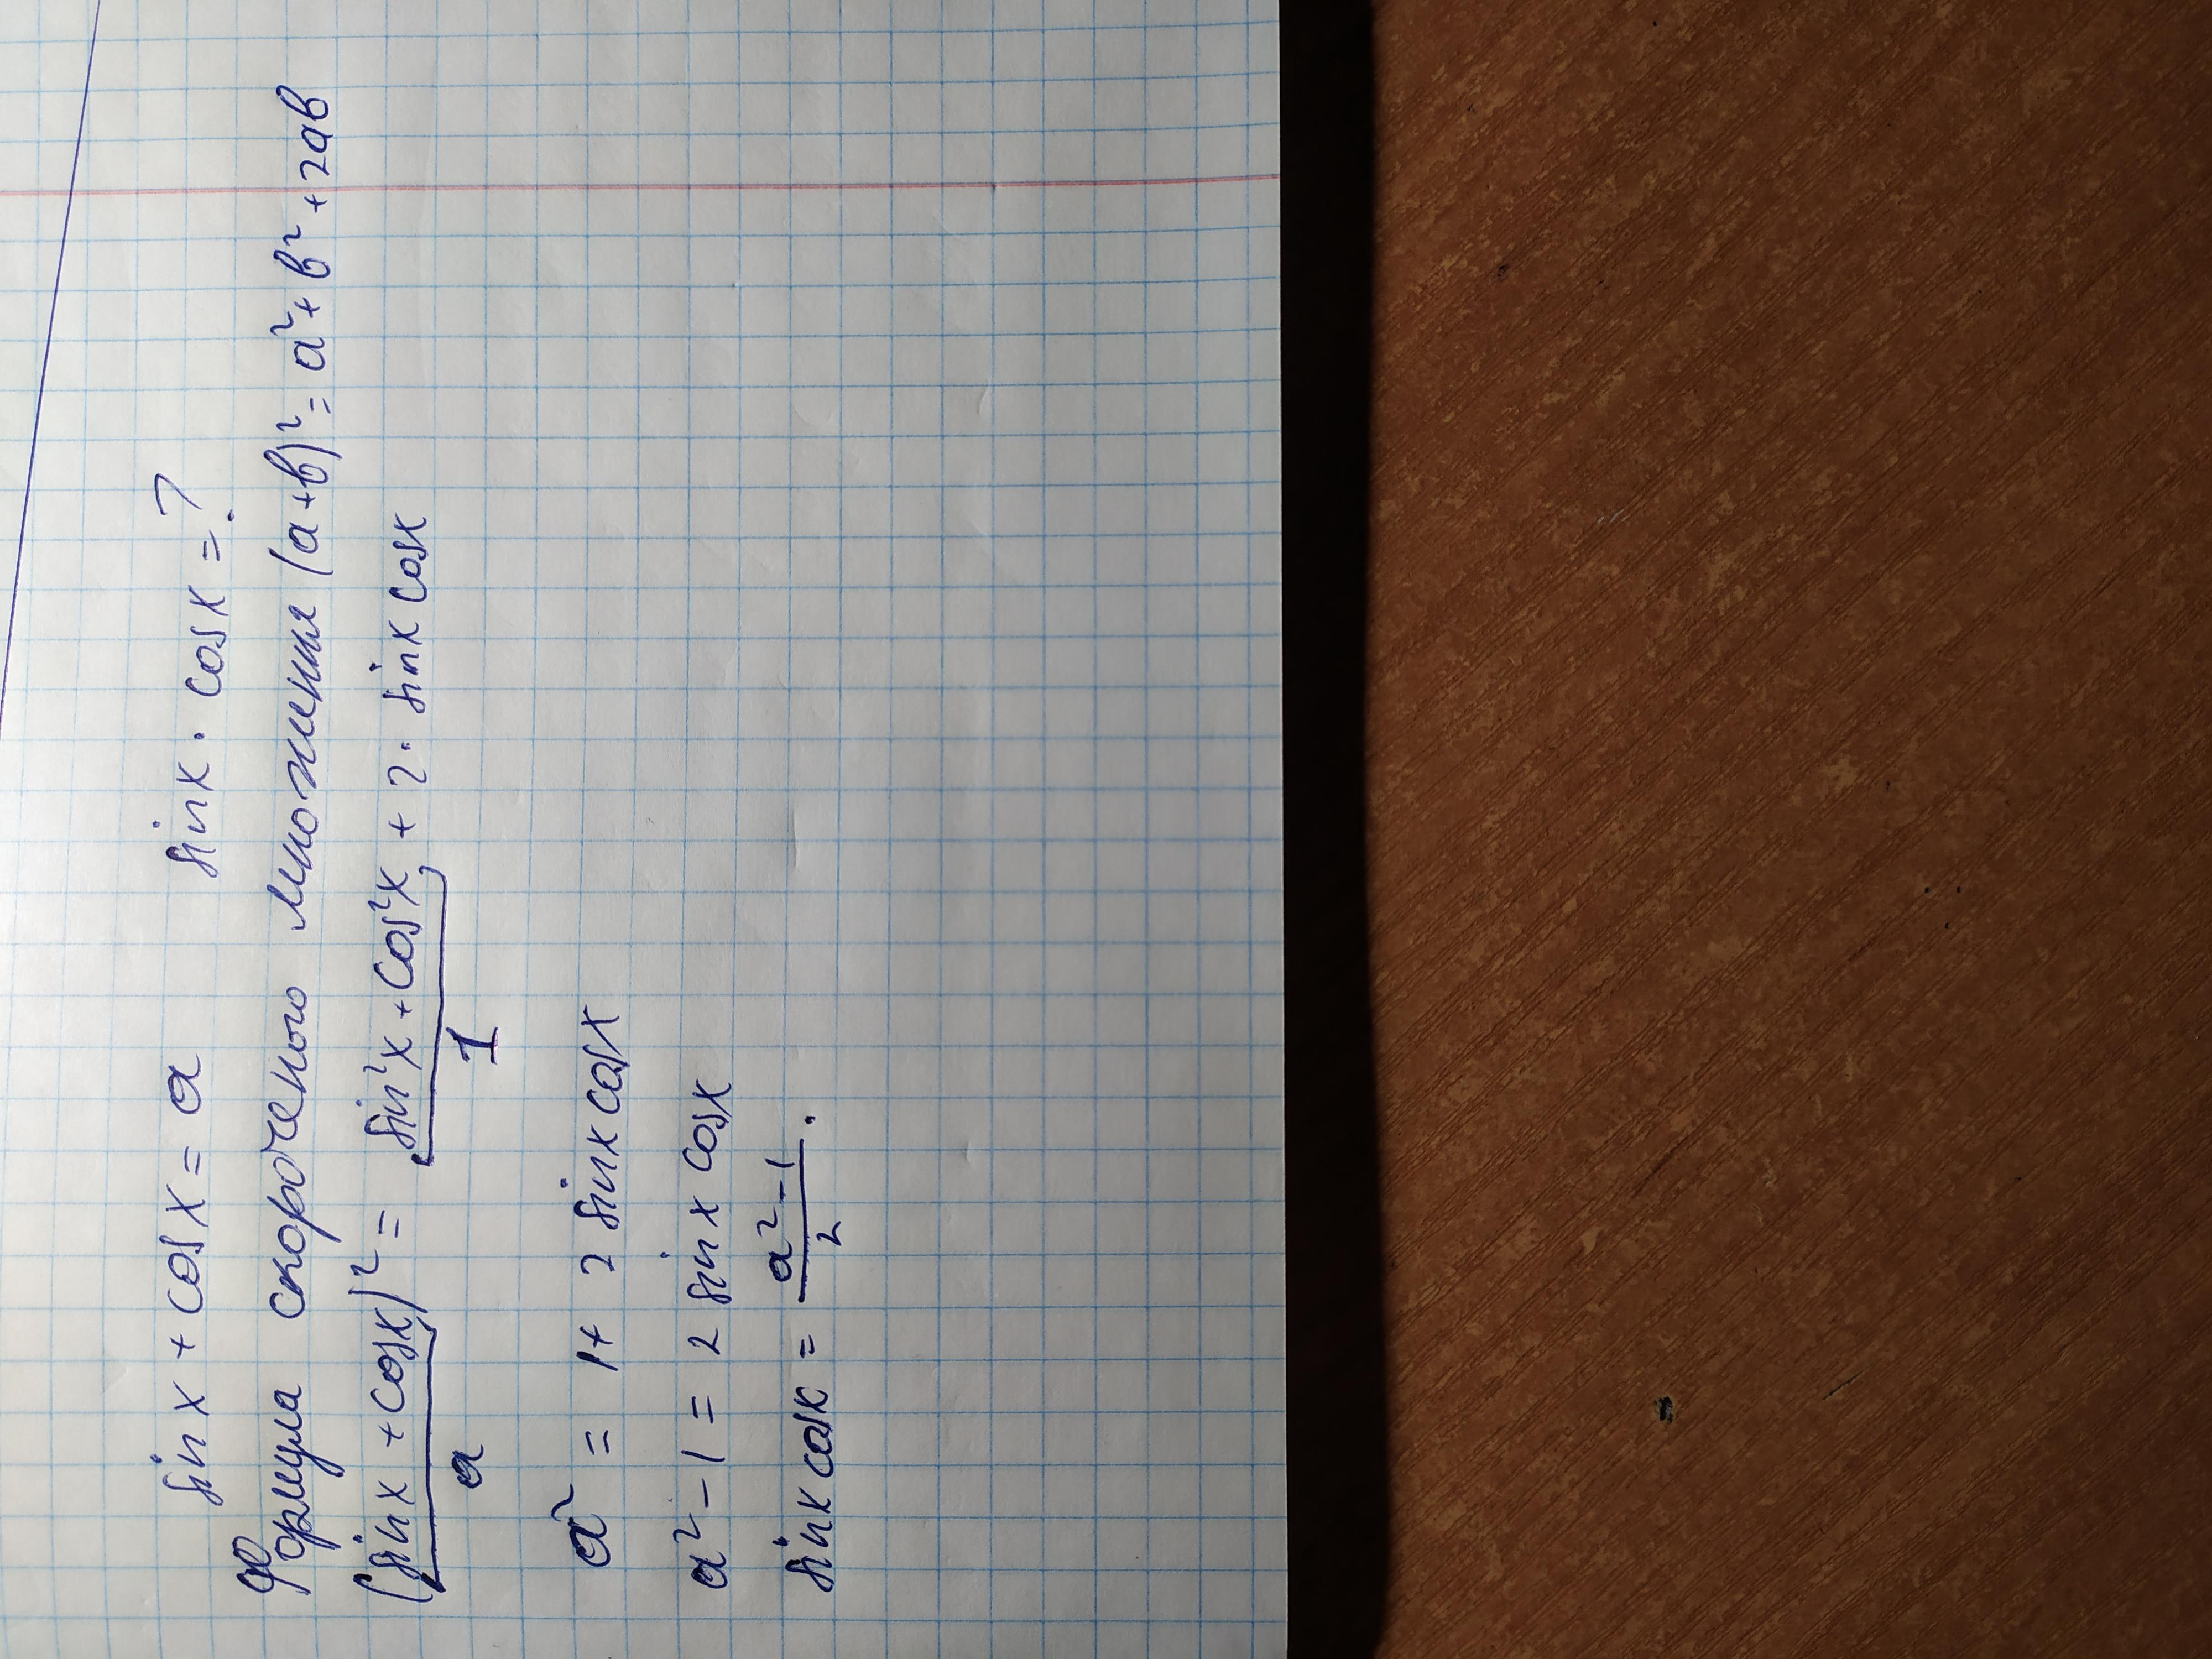 sin x + cos x = a sin x · cos x = ?
Формула скороченого множення (a+b)² = a² + b² + 2ab
(sin x + cos x)² = sin²x + cos²x + 2 · sin x cos x
a 1
a² = 1 + 2 sin x cos x
a² - 1 = 2 sin x cos x
sin x cos x = (a² - 1)/2 .